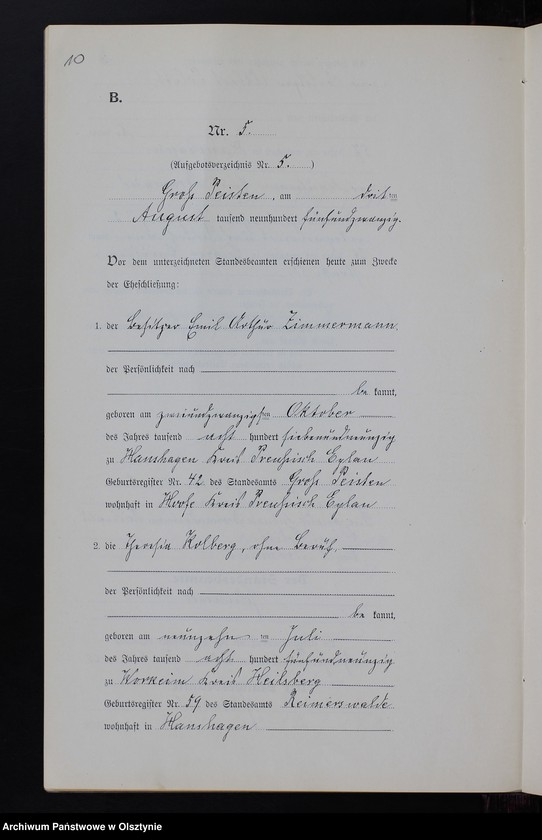 10
B.
Nr. 5.
(Aufgebotsverzeichnis Nr. 5.)
Groß Peisten, am dritten
August tausend neunhundert fünfundzwanzig.
Vor dem unterzeichneten Standesbeamten erschienen heute zum Zwecke
der Eheschließung:
1. der Besitzer Emil Arthur Zimmermann,
der Persönlichkeit nach
bekannt,
geboren am zweiundzwanzigsten Oktober
des Jahres tausend acht hundert siebenundneunzig
zu Hanshagen Kreis Preußisch Eylau
Geburtsregister Nr. 42 des Standesamts Groß Peisten
wohnhaft in Hoofe Kreis Preußisch Eylau
2. die Theresia Kolberg, ohne Beruf,
der Persönlichkeit nach
bekannt,
geboren am neunzehnten Juli
des Jahres tausend acht hundert fünfundneunzig
zu Workeim Kreis Heilsberg
Geburtsregister Nr. 59 des Standesamts Reimerswalde
wohnhaft in Hanshagen
Archiwum Państwowe w Olsztynie